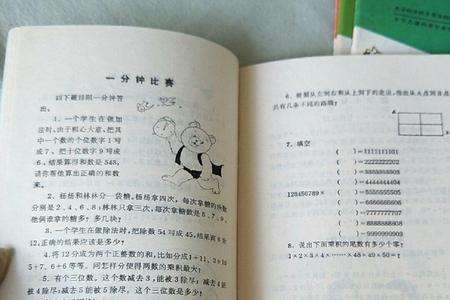 一分钟比赛
以下题目限一分钟答
出。
1. 一个学生在做加
法时,由于粗心大意,把其
中一个数的个位数字1写
成了7,把十位数字9写成
6,结果算得和数是548,
请你帮他算出正确的和数
来。
2. 杨杨和林林分一袋糖,杨杨拿四次,每次拿糖的块数
分别是2、4、6、8;林林只拿三次,每次拿糖数是5、7、9,
他俩谁拿的糖多?多几块?
3. 一个学生在做除法时,把除数54写成45,结果
12,正确的结果应该是多少?
4. 将12分成为两个正整数的和,比如分成1+11、2+10
5+7、6+6等等。问怎样分使得两数的乘积最大?
5. 有个三位数,这个数减去3,能被3除尽;减去4能
被4除尽;减去5能被5除尽。这个三位数是多少?
6. 根据从左到右和从上到下的走法,指出从A点到B点
共有几条不同的路线?
A
7. 填空
( )=1111111101
( )=2222222202
( )=3333333303
( )=4444444404
12345679×( )=5555555505
( )=6666666606
( )=7777777707
( )=8888888808
( )=9999999909
8. 说出下面乘积的尾数有多少个零:
1×2×3×4×……×48×49×50=